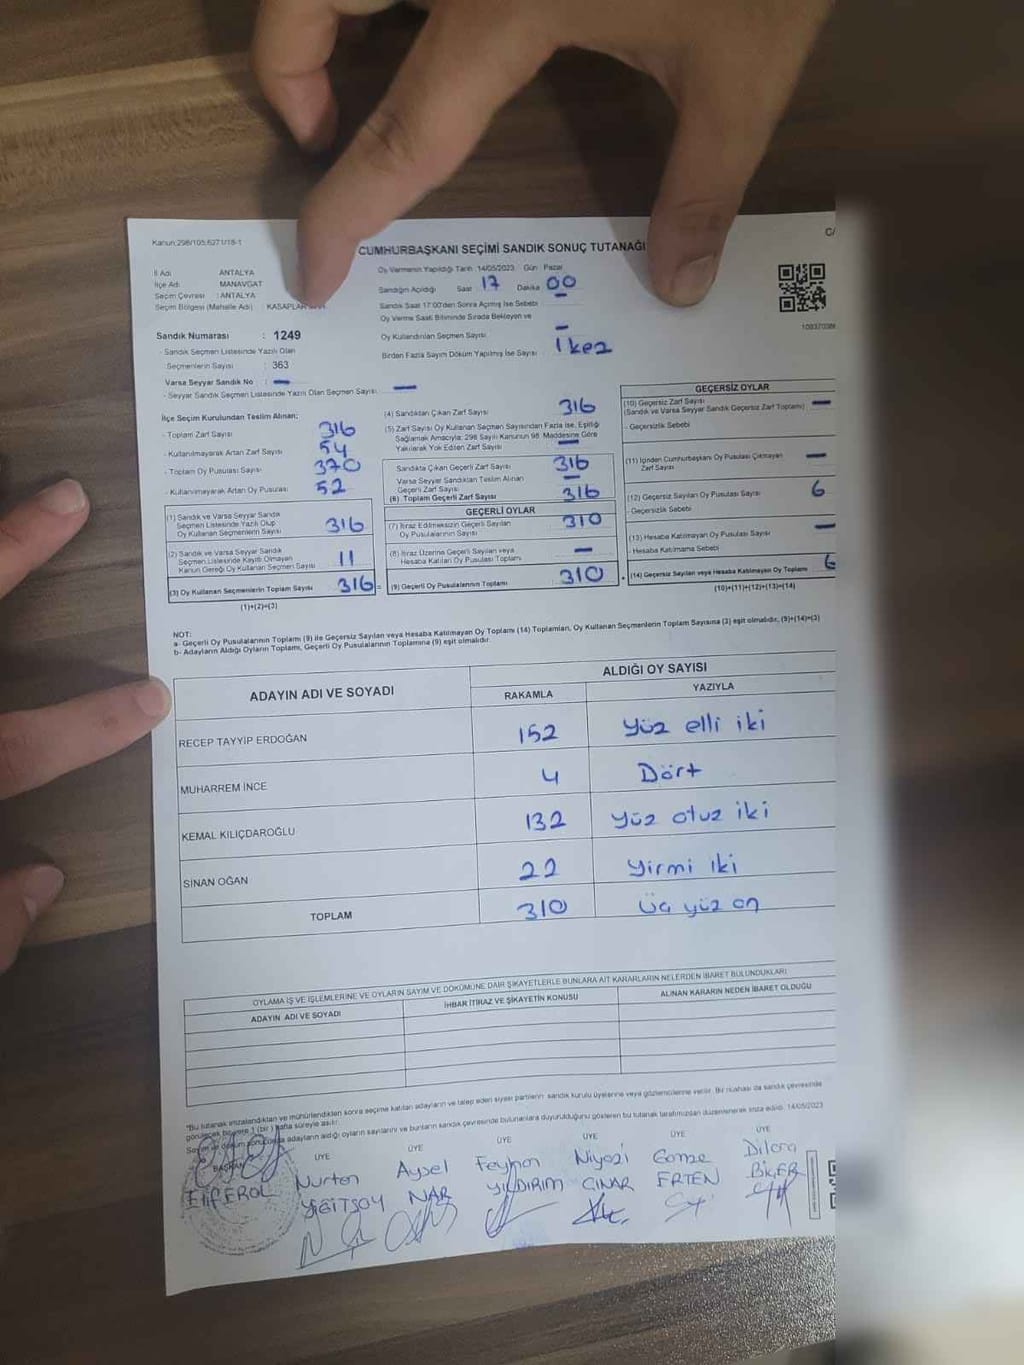 Kanun:298/105;6271/18-1
C/
CUMHURBAŞKANI SEÇİMİ SANDIK SONUÇ TUTANAĞI
İl Adı ANTALYA
İlçe Adı MANAVGAT
Seçim Çevresi : ANTALYA
Seçim Bölgesi (Mahalle Adı) : KASAPLAR
Oy Vermenin Yapıldığı Tarih 14/05/2023 Gün Pazar
Sandığın Açıldığı Saat 17 Dakika 00
Sandık Saat 17:00'den Sonra Açılmış İse Sebebi
Oy Verme Saati Bitiminde Sırada Bekleyen ve
Oy Kullandırılan Seçmen Sayısı –
Birden Fazla Sayım Döküm Yapılmış İse Sayısı 1 kez
Sandık Numarası : 1249
- Sandık Seçmen Listesinde Yazılı Olan
Seçmenlerin Sayısı : 363
Varsa Seyyar Sandık No : –
- Seyyar Sandık Seçmen Listesinde Yazılı Olan Seçmen Sayısı –
İlçe Seçim Kurulundan Teslim Alınan:
- Toplam Zarf Sayısı 316
- Kullanılmayarak Artan Zarf Sayısı 54
- Toplam Oy Pusulası Sayısı 370
- Kullanılmayarak Artan Oy Pusulası 52
(1) Sandık ve Varsa Seyyar Sandık
Seçmen Listesinde Yazılı Olup
Oy Kullanan Seçmenlerin Sayısı 316
(2) Sandık ve Varsa Seyyar Sandık
Seçmen Listesinde Kayıtlı Olmayan
Kanun Gereği Oy Kullanan Seçmen Sayısı 11
(3) Oy Kullanan Seçmenlerin Toplam Sayısı 316 =
(1)+(2)=(3)
(4) Sandıktan Çıkan Zarf Sayısı 316
(5) Zarf Sayısı Oy Kullanan Seçmen Sayısından Fazla ise, Eşitliği
Sağlamak Amacıyla; 298 Sayılı Kanunun 98. Maddesine Göre
Yakılarak Yok Edilen Zarf Sayısı –
Sandıkta Çıkan Geçerli Zarf Sayısı 316
Varsa Seyyar Sandıktan Teslim Alınan
Geçerli Zarf Sayısı –
(6) Toplam Geçerli Zarf Sayısı 316
GEÇERLİ OYLAR
(7) İtiraz Edilmeksizin Geçerli Sayılan
Oy Pusulalarının Sayısı 310
(8) İtiraz Üzerine Geçerli Sayılan veya
Hesaba Katılan Oy Pusulası Toplamı –
(9) Geçerli Oy Pusulalarının Toplamı 310 +
GEÇERSİZ OYLAR
(10) Geçersiz Zarf Sayısı
(Sandık ve Varsa Seyyar Sandık Geçersiz Zarf Toplamı) –
- Geçersizlik Sebebi
(11) İçinden Cumhurbaşkanı Oy Pusulası Çıkmayan
Zarf Sayısı –
(12) Geçersiz Sayılan Oy Pusulası Sayısı 6
- Geçersizlik Sebebi
(13) Hesaba Katılmayan Oy Pusulası Sayısı –
- Hesaba Katılmama Sebebi
(14) Geçersiz Sayılan veya Hesaba Katılmayan Oy Toplamı 6
(10)+(11)+(12)+(13)=(14)
NOT:
a- Geçerli Oy Pusulalarının Toplamı (9) ile Geçersiz Sayılan veya Hesaba Katılmayan Oy Toplamı (14) Toplamları, Oy Kullanan Seçmenlerin Toplam Sayısına (3) eşit olmalıdır, (9)+(14)=(3)
b- Adayların Aldığı Oyların Toplamı, Geçerli Oy Pusulalarının Toplamına (9) eşit olmalıdır.
ADAYIN ADI VE SOYADI
ALDIĞI OY SAYISI
RAKAMLA YAZIYLA
RECEP TAYYİP ERDOĞAN 152 Yüz elli iki
MUHARREM İNCE 4 Dört
KEMAL KILIÇDAROĞLU 132 Yüz otuz iki
SİNAN OĞAN 22 Yirmi iki
TOPLAM 310 Üç yüz on
OYLAMA İŞ VE İŞLEMLERİNE VE OYLARIN SAYIM VE DÖKÜMÜNE DAİR ŞİKAYETLERLE BUNLARA AİT KARARLARIN NELERDEN İBARET BULUNDUKLARI
ADAYIN ADI VE SOYADI İHBAR İTİRAZ VE ŞİKAYETİN KONUSU ALINAN KARARIN NEDEN İBARET OLDUĞU
"Bu tutanak imzalandıktan ve mühürlendikten sonra seçime katılan adayların ve talep eden siyasi partilerin sandık kurulu üyelerine veya gözlemcilerine verilir. Bir nüshası da sandık çevresinde
görülecek bir yere 1 (bir) hafta süreyle asılır.
adayların aldığı oyların sayılarını ve bunların sandık çevresinde bulunanlara duyurulduğunu gösteren bu tutanak tarafımızdan düzenlenerek imza edildi. 14/05/2023
BAŞKAN ÜYE ÜYE ÜYE ÜYE ÜYE ÜYE
Elif EROL Nurten YİĞİTSOY Aysel NAR Feyhan YILDIRIM Niyazi ÇINAR Gamze ERTEN Dilara BİÇER